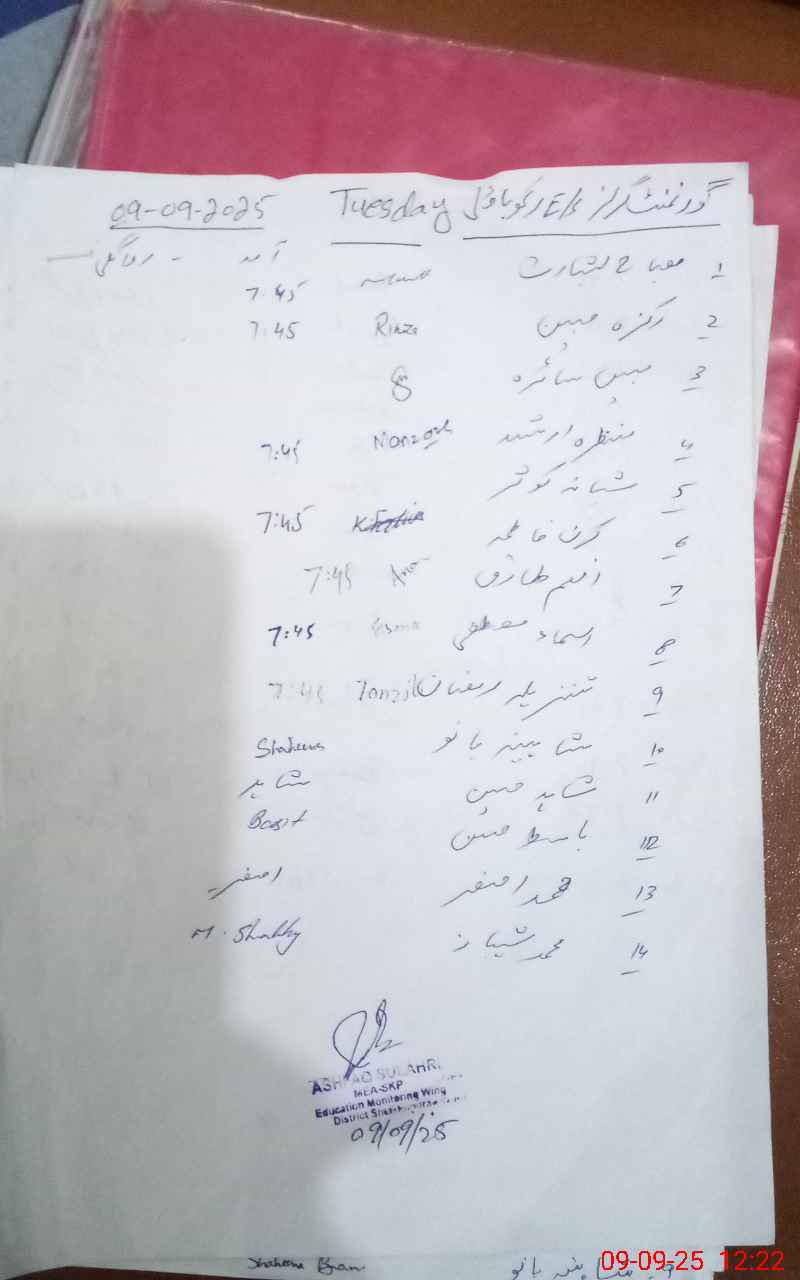 گورنمنٹ گرلز E/S Tuesday 09-09-2025
آمد - روانگی
1 مصباح بشارت 7:45
2 رکزہ مبین Rinza 7:45
3 مس سائرہ
4 منظرہ ارشد 7:45
5 شبانہ کوثر
6 کرن فاطمہ 7:45
7 انعم طارق 7:45
8 اسماء مصطفی Asma 7:45
9 تنزیلہ رمضان 7:45
10 شاہینہ بانو Shaheena
11 شاہد حسین شاہد
12 باسط حسین Basit
13 محمد اصغر اصغر
14 محمد شہباز M. Shahbaz
ASHFAQ SULAHRI
MEA-SKP
Education Monitoring Wing
District Sheikhupura
09/09/25
Shaheena شاہینہ بانو
09-09-25 12:22